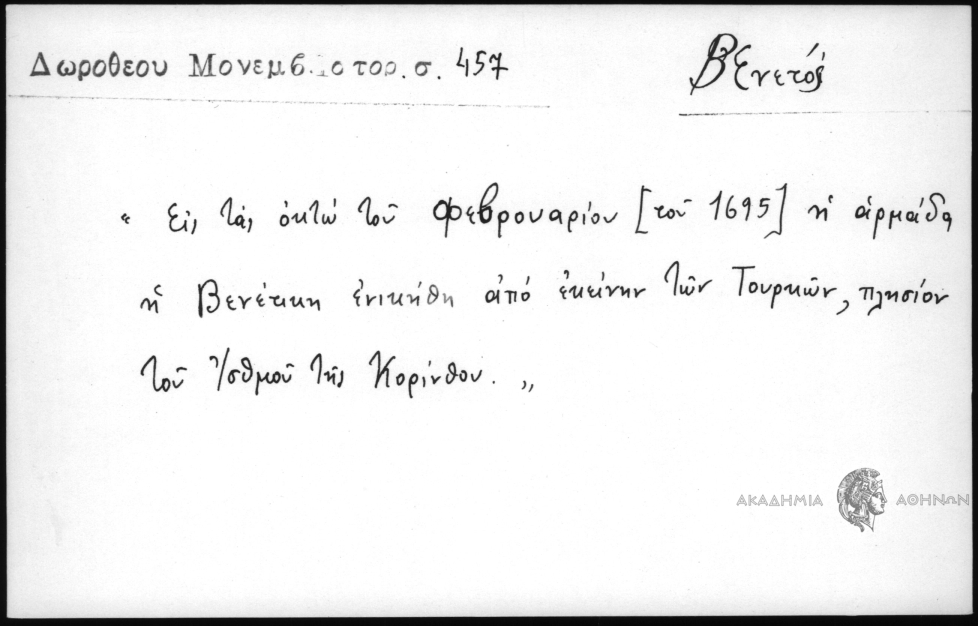 Δωροθεου Μονεμβ. ιστορ. σ. 457
Βενετός
" Εἰς τὰς ὀκτώ τοῦ Φεβρουαρίου [τοῦ 1695] ἡ ἁρμάδα
ἡ Βενέτικη ἐνικήθη ἀπό ἐκείνην τῶν Τουρκῶν, πλησίον
τοῦ Ἰσθμοῦ τῆς Κορίνθου. "
ΑΚΑΔΗΜΙΑ ΑΘΗΝΩΝ